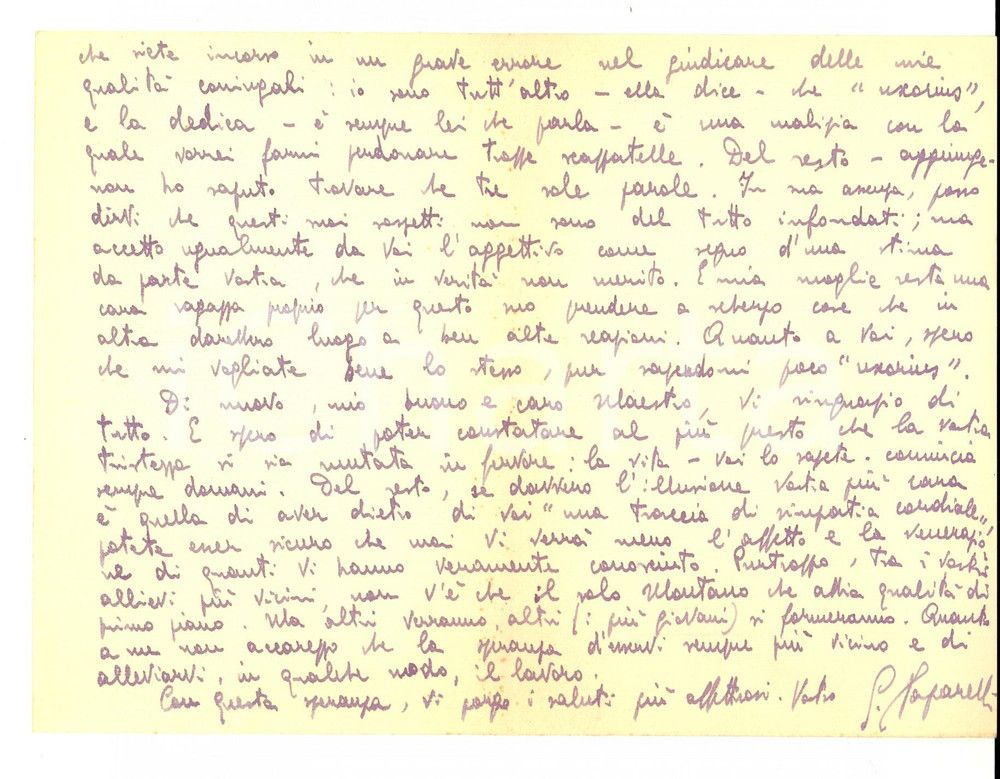 che siete incorso in un grave errore nel giudicare delle mie
qualità coniugali : io sono tutt'altro – ella dice – che "uxorius",
e la dedica – è sempre lei che parla – è una malizia con la
quale vorrei farmi perdonare troppe scappatelle. Del resto – aggiunge –
non ho saputo trovare che tre sole parole. In sua assenza, posso
dirvi che questi suoi sospetti non sono del tutto infondati; ma
accetto ugualmente da Voi l'aggettivo come segno d'una stima
da parte Vostra, che in verità non merito. E mia moglie resta una
cara ragazza proprio per questo suo prendere a scherzo cose che in
altra darebbero luogo a ben altre reazioni. Quanto a Voi, spero
che mi vogliate bene lo stesso, pur sapendomi poco "uxorius".
Di nuovo, mio buono e caro Maestro, Vi ringrazio di
tutto. E spero di poter constatare al più presto che la Vostra
tristezza si sia mutata in fervore : la vita – Voi lo sapete – comincia
sempre domani. Del resto, se davvero l'illusione Vostra più cara
è quella di aver dietro di Voi "una traccia di simpatia cordiale",
potete esser sicuro che mai Vi verrà meno l'affetto e la venerazio
ne di quanti Vi hanno veramente conosciuto. Purtroppo, tra i Vostri
allievi più vicini, non v'è che il solo Montano che abbia qualità di
primo piano. Ma altri verranno, altri (i più giovani) si formeranno. Quanto
a me non accarezzo che la speranza d'esservi sempre più vicino e di
alleviarvi, in qualche modo, il lavoro.
Con questa speranza, Vi porgo i saluti più affettuosi. Vostro